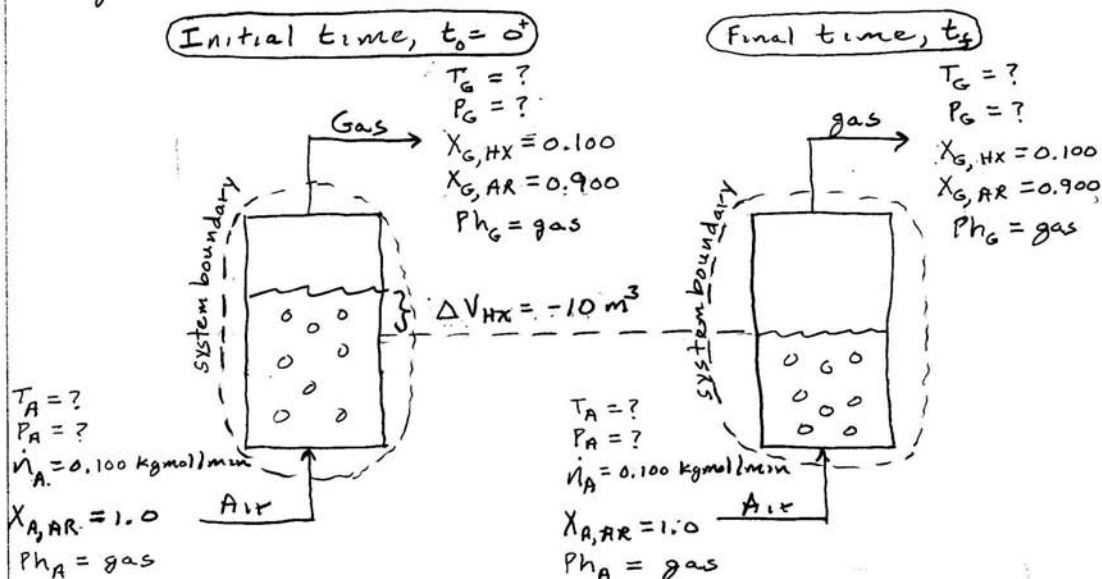 Initial time, t₀ = 0⁺
T_G = ?
P_G = ?
Gas
X_G,HX = 0.100
X_G,AR = 0.900
Ph_G = gas
system boundary
ΔV_HX = -10 m³
T_A = ?
P_A = ?
ṅ_A = 0.100 kgmol/min
X_A,AR = 1.0
Air
Ph_A = gas
Final time, t_f
T_G = ?
P_G = ?
gas
X_G,HX = 0.100
X_G,AR = 0.900
Ph_G = gas
system boundary
T_A = ?
P_A = ?
ṅ_A = 0.100 kgmol/min
X_A,AR = 1.0
Air
Ph_A = gas